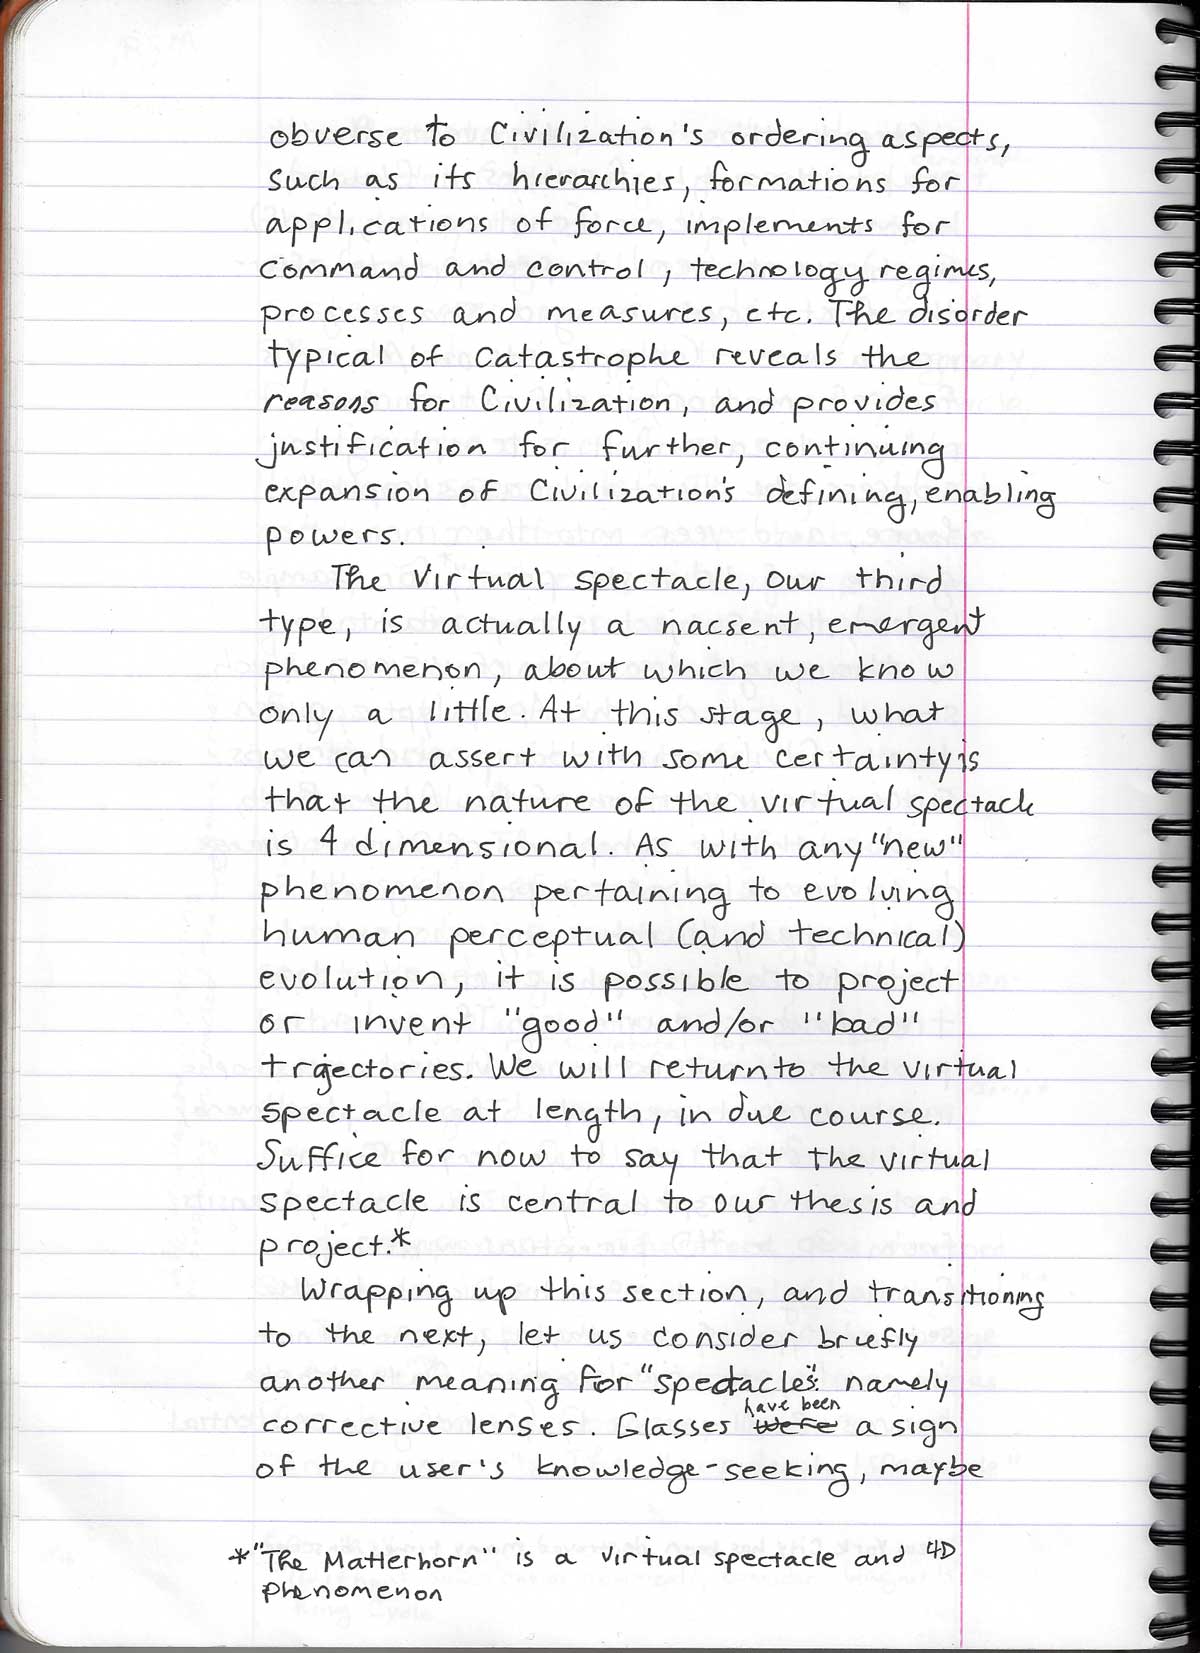 obverse to Civilization's ordering aspects,
such as its hierarchies, formations for
applications of force, implements for
command and control, technology regimes,
processes and measures, etc. The disorder
typical of Catastrophe reveals the
reasons for Civilization, and provides
justification for further, continuing
expansion of Civilization's defining, enabling
powers.
The Virtual spectacle, our third
type, is actually a nacsent, emergent
phenomenon, about which we know
only a little. At this stage, what
we can assert with some certainty is
that the nature of the virtual spectacle
is 4 dimensional. As with any "new"
phenomenon pertaining to evolving
human perceptual (and technical)
evolution, it is possible to project
or invent "good" and/or "bad"
trajectories. We will return to the virtual
spectacle at length, in due course.
Suffice for now to say that the virtual
spectacle is central to our thesis and
project.*
Wrapping up this section, and transitioning
to the next, let us consider briefly
another meaning for "spectacles": namely
have been
corrective lenses. Glasses were a sign
of the user's knowledge-seeking, maybe
*"The Matterhorn" is a virtual spectacle and 4D
phenomenon